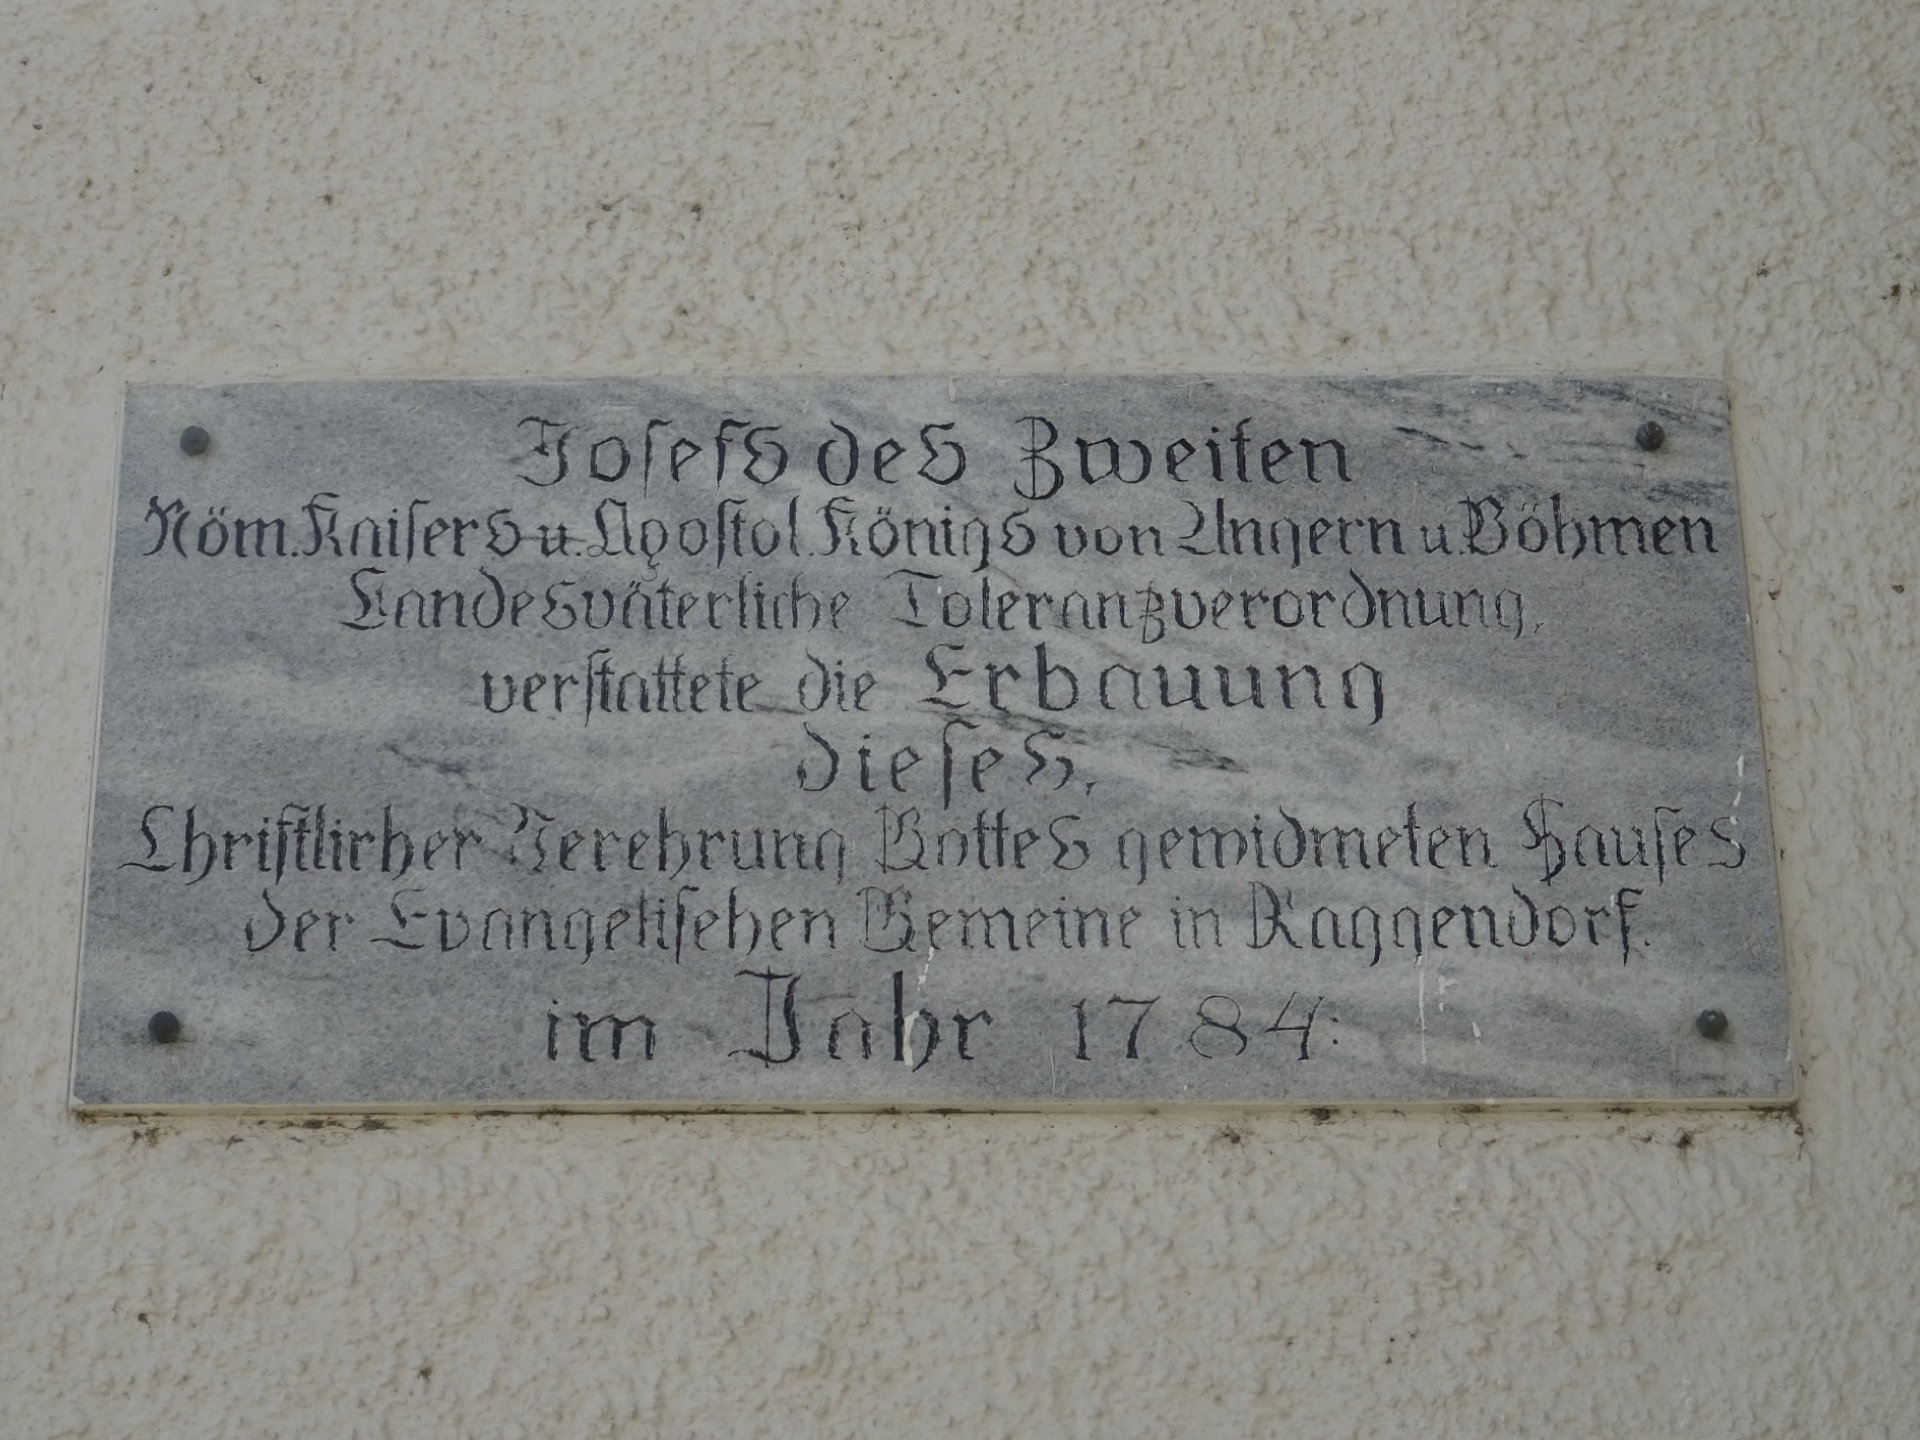 Josefs des Zweiten
Röm. Kaisers u. Apostol. Königs von Ungern u. Böhmen
Landesväterliche Toleranzverordnung,
verstattete die Erbauung
dieses,
Christlicher Verehrung Gottes gewidmeten Hauses
der Evangelischen Gemeine in Raggendorf.
im Jahr 1784: